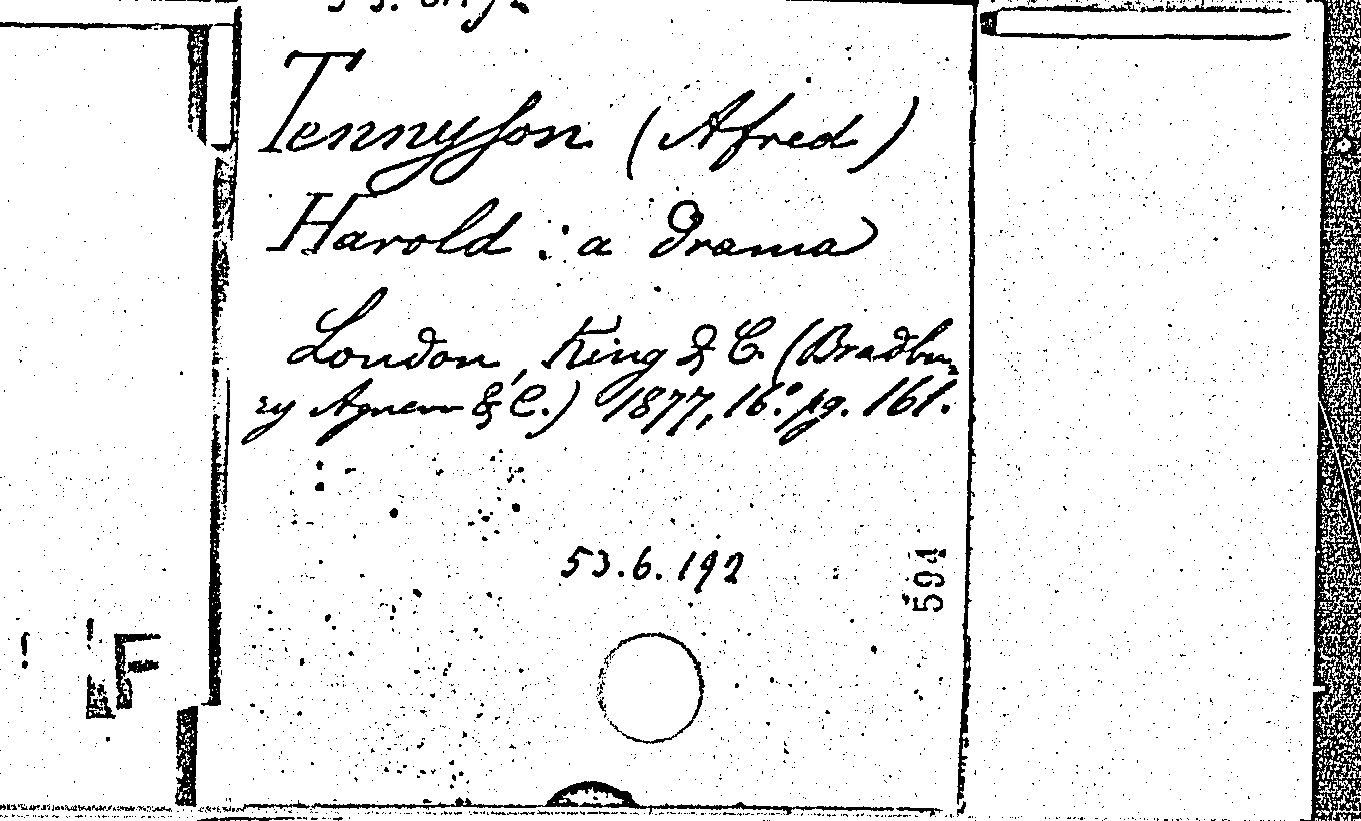 Tennyson (Afred)
Harold : a drama
London, King & C. (Bradbu
ry Agnew & C.) 1877, 16.° pg. 161.
53.6.192
594